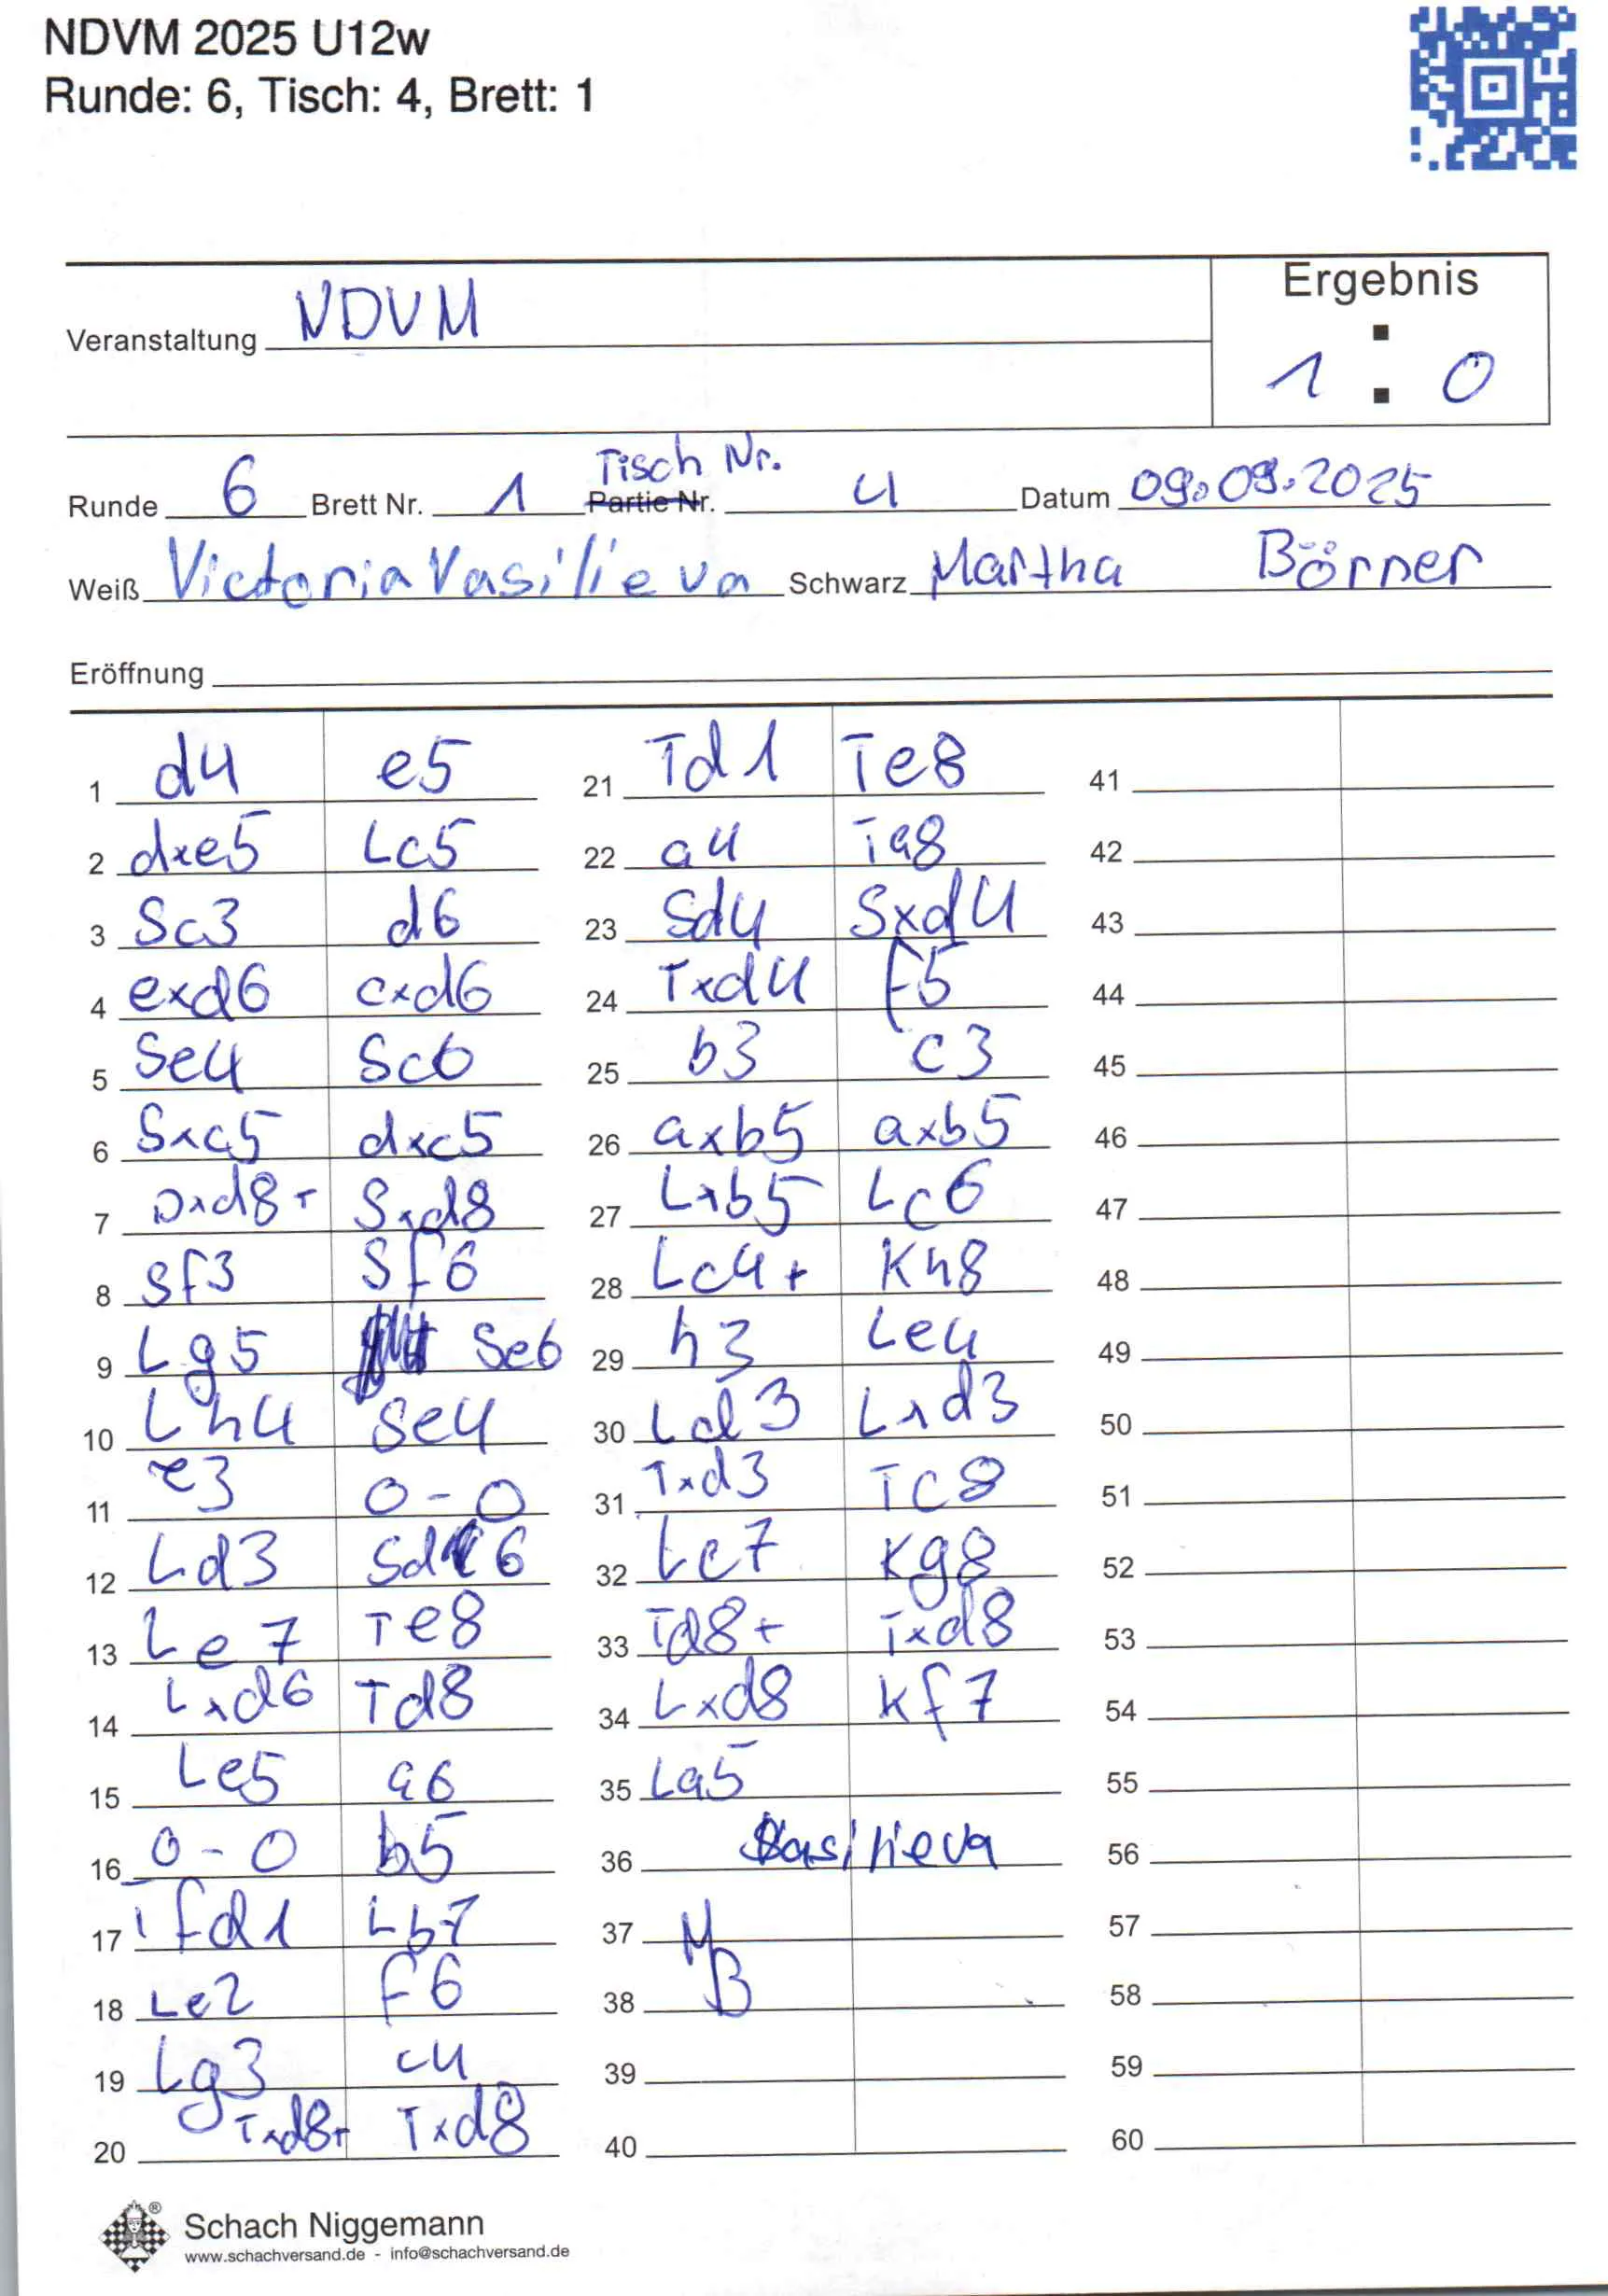 NDVM 2025 U12w
Runde: 6, Tisch: 4, Brett: 1
Ergebnis
Veranstaltung NDVM
1 : 0
Tisch Nr.
Runde 6 Brett Nr. 1 Partie Nr. 4 Datum 09.09.2025
Weiß Victoria Vasilieva Schwarz Martha Börner
Eröffnung
1 d4 e5
2 dxe5 Lc5
3 Sc3 d6
4 exd6 cxd6
5 Se4 Sc6
6 Sxc5 dxc5
7 Dxd8+ Sxd8
8 Sf3 Sf6
9 Lg5 Se6
10 Lh4 Se4
11 e3 0-0
12 Ld3 Sd6
13 Le7 Te8
14 Lxd6 Td8
15 Le5 a6
16 0-0 b5
17 Tfd1 Lb7
18 Le2 f6
19 Lg3 c4
20 Txd8+ Txd8
21 Td1 Te8
22 a4 Ta8
23 Sd4 Sxd4
24 Txd4 f5
25 b3 c3
26 axb5 axb5
27 Lxb5 Lc6
28 Lc4+ Kh8
29 h3 Le4
30 Ld3 Lxd3
31 Txd3 Tc8
32 Lc7 Kg8
33 Td8+ Txd8
34 Lxd8 Kf7
35 La5
36 Vasilieva
37 M
38 B
39
40
41
42
43
44
45
46
47
48
49
50
51
52
53
54
55
56
57
58
59
60
Schach Niggemann
www.schachversand.de - info@schachversand.de